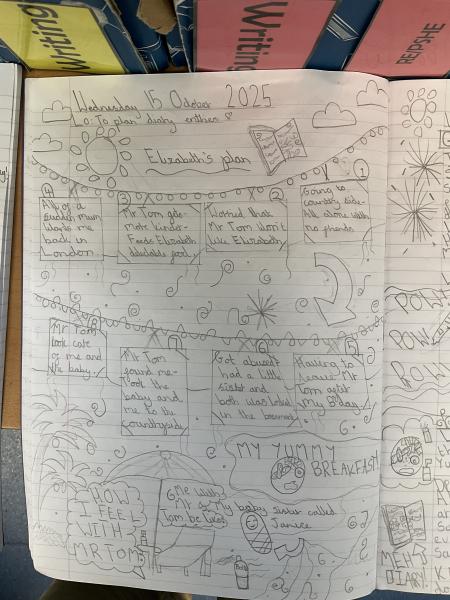 Writing
Writing
Wednesday 15 October 2025
L.o: To plan diary entries
Elizabeth's plan
①
Going to
country side-
All alone with
no friends
②
Worried that
Mr Tom won't
like Elizabeth
③
Mr Tom gets
more kinder-
Feeds Elizabeth
delectable food
④
All of a
sudden mum
wants me
back in
London
⑤
Having to
leave Mr
Tom after
my B'day
⑥
Got abused-
had a little
sister and
both was locked
in the basement
⑦
Mr Tom
found me-
took the
baby and
me to the
countryside
Mr Tom
took care
of me and
the baby
MY YUMMY
BREAKFAST
HOW
I FEEL
WITH
MR TOM
Me with
Mr
Tom
My baby sister called
Janice
POW
POW
POW
MEH
DIARY!